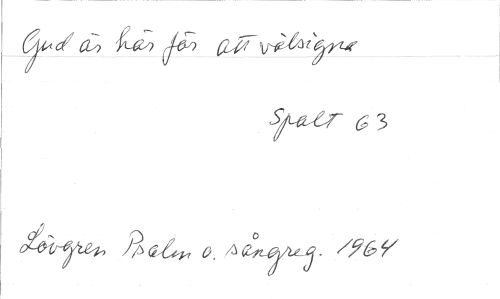 Gud är här för att välsigna
Spalt 63
Lövgren Psalm o. sångreg. 1964